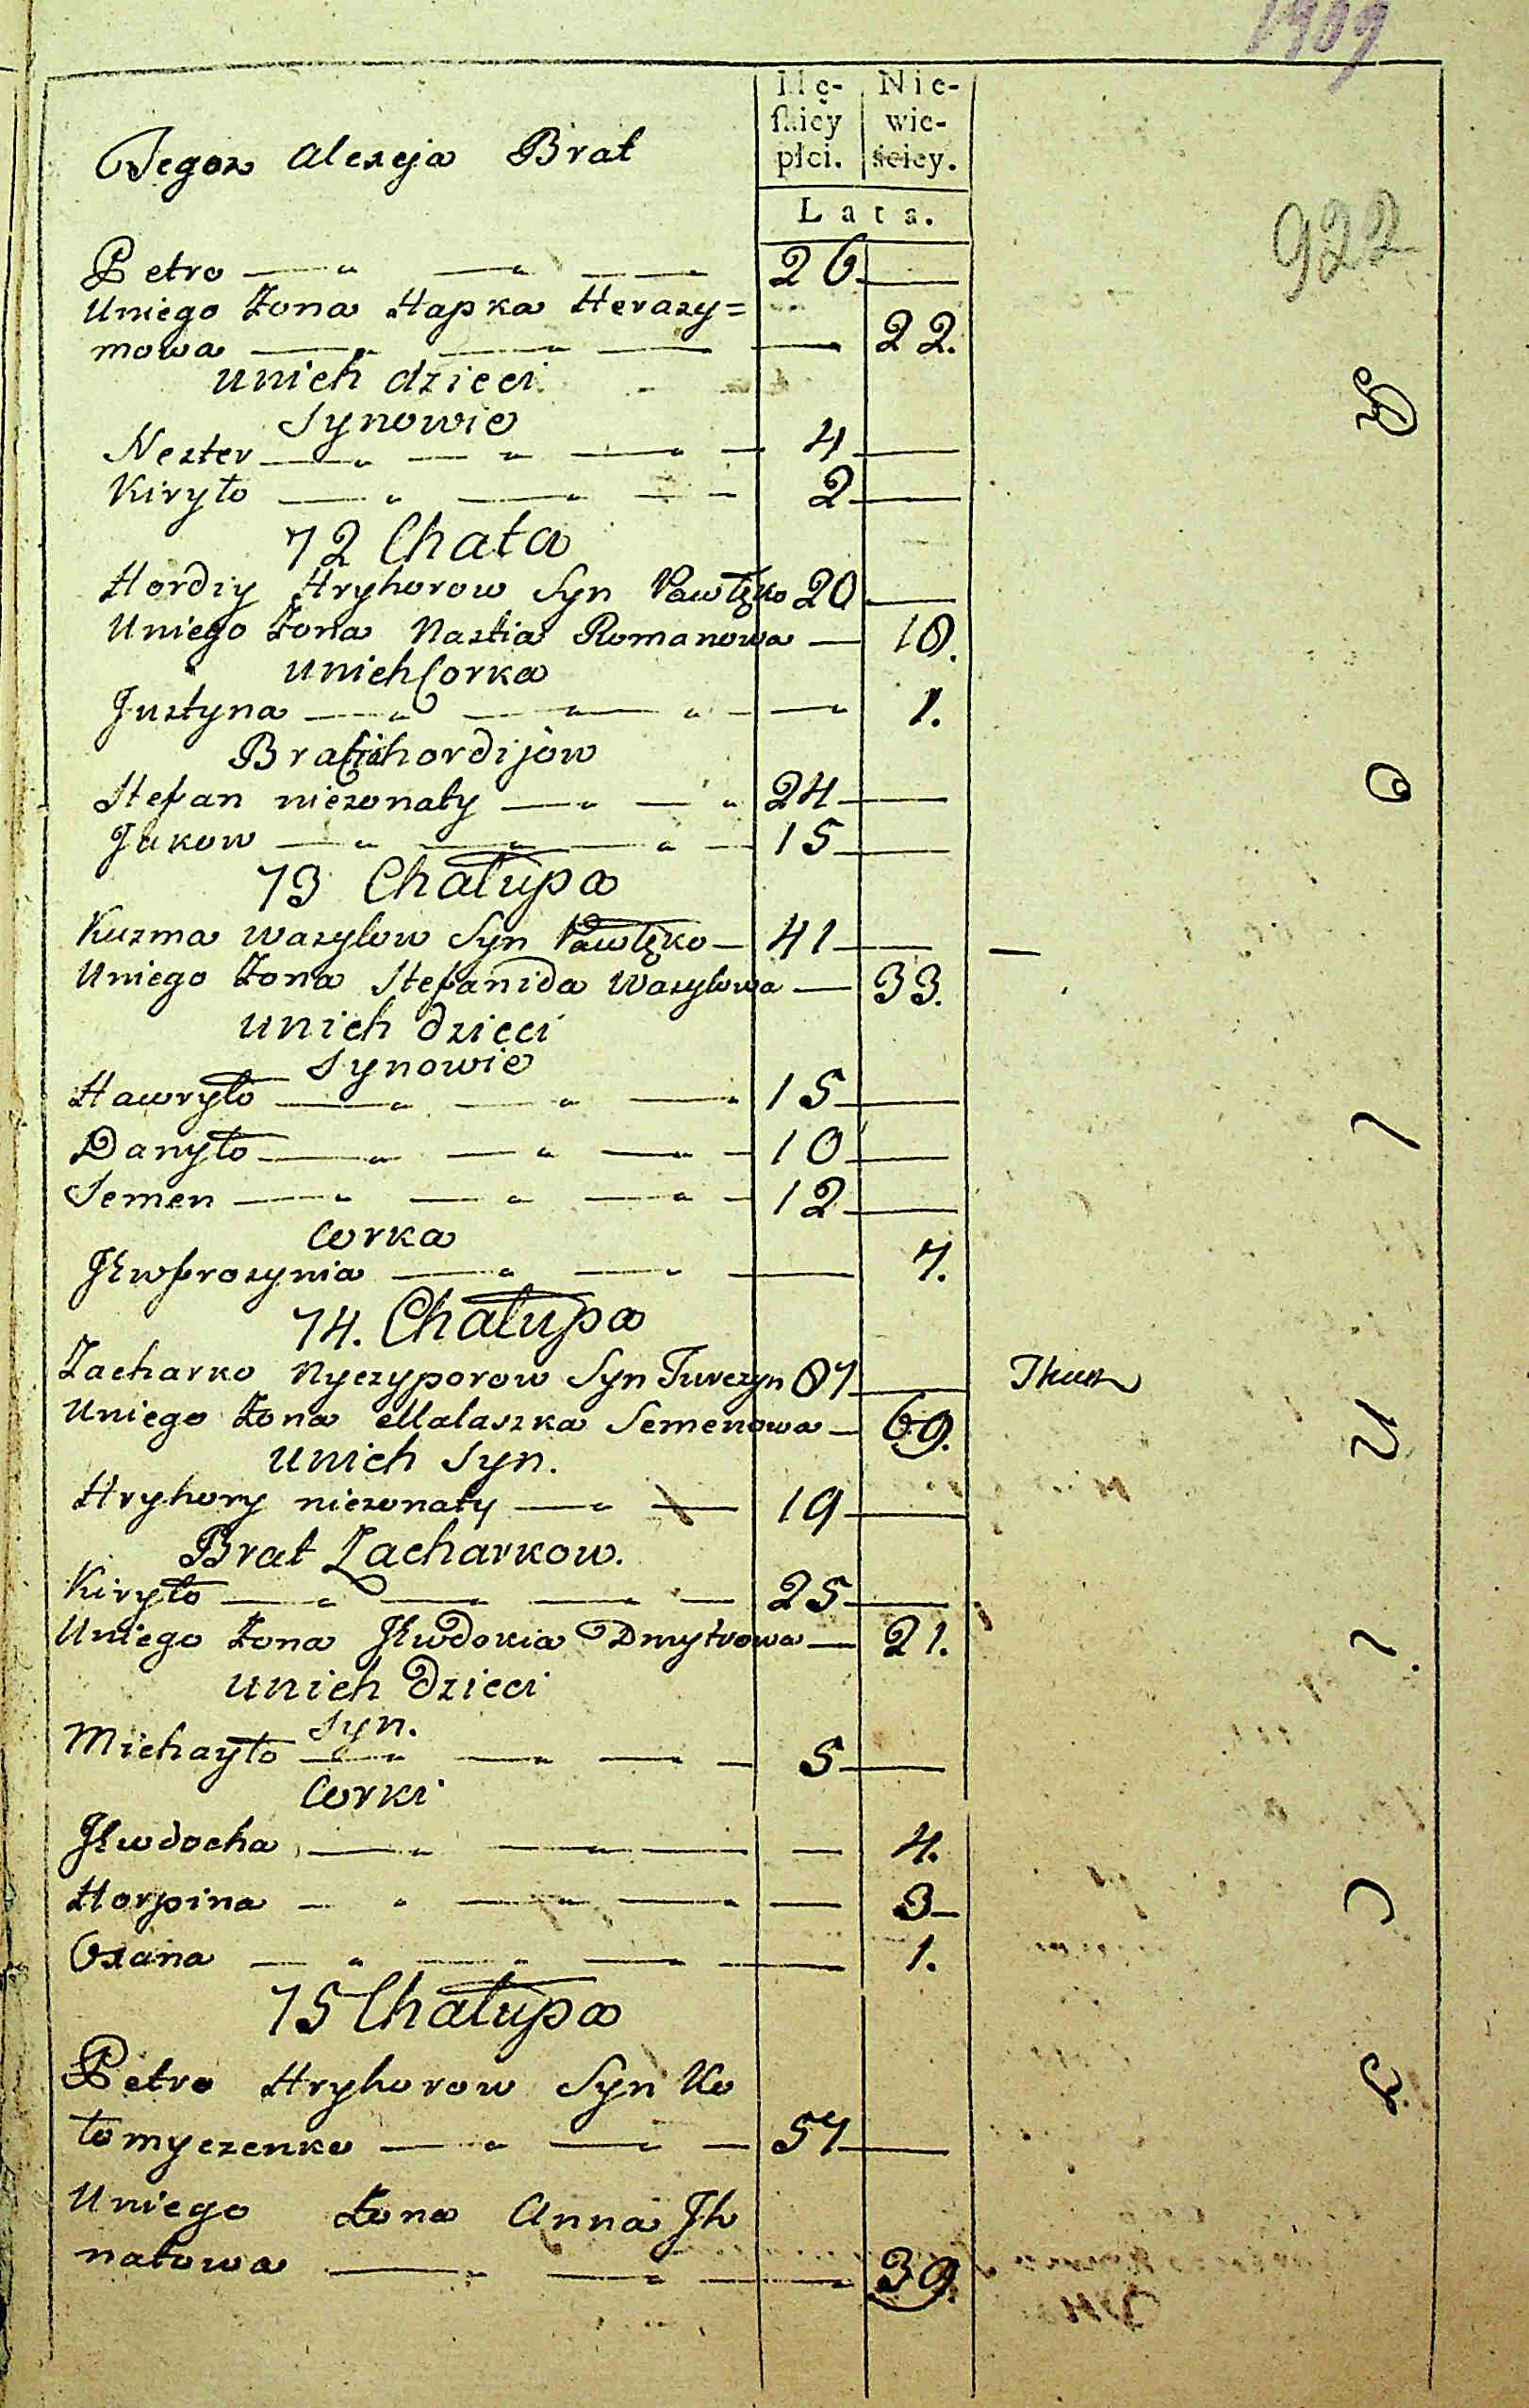 1909
Mę- Nie-
skiey wie-
płci. ściey.
Lata.
922
Tegoz Alexeja Brat
Petro 26
Uniego Żona Hapka Herasy=
mowa 22.
unich dzieci
Synowie
Nester 4
Kiryło 2
72 Chata
Hordiy Hryhorow Syn Pawlęko 20
Uniego Żona Nastia Romanowa 18.
unich Corka
Justyna 1.
Bracia hordijow
Stefan niezonaty 24
Jakow 15
73 Chałupa
Kuzma Wasylow Syn Pawlęko 41
Uniego Żona Stefanida Wasylowa 33.
unich dzieci
Synowie
Hawryło 15
Danyło 10
Semen 12
Corka
Jewfrozynia 7.
74. Chałupa
Zacharko Nyczyporow Syn Turczyn 87
Uniego Żona Malaszka Semenowa 69.
unich Syn.
Hryhory niezonaty 19
Brat Zacharkow.
Kiryło 25
Uniego Żona Jewdokia Dmytrowa 21.
unich dzieci
Syn.
Michayło 5
Corki
Jewdocha 4.
Horpina 3
Oxana 1.
75 Chałupa
Petro Hryhorow Syn Ko
łomyczenko 57
Uniego Żona Anna Jh
natowa 39.